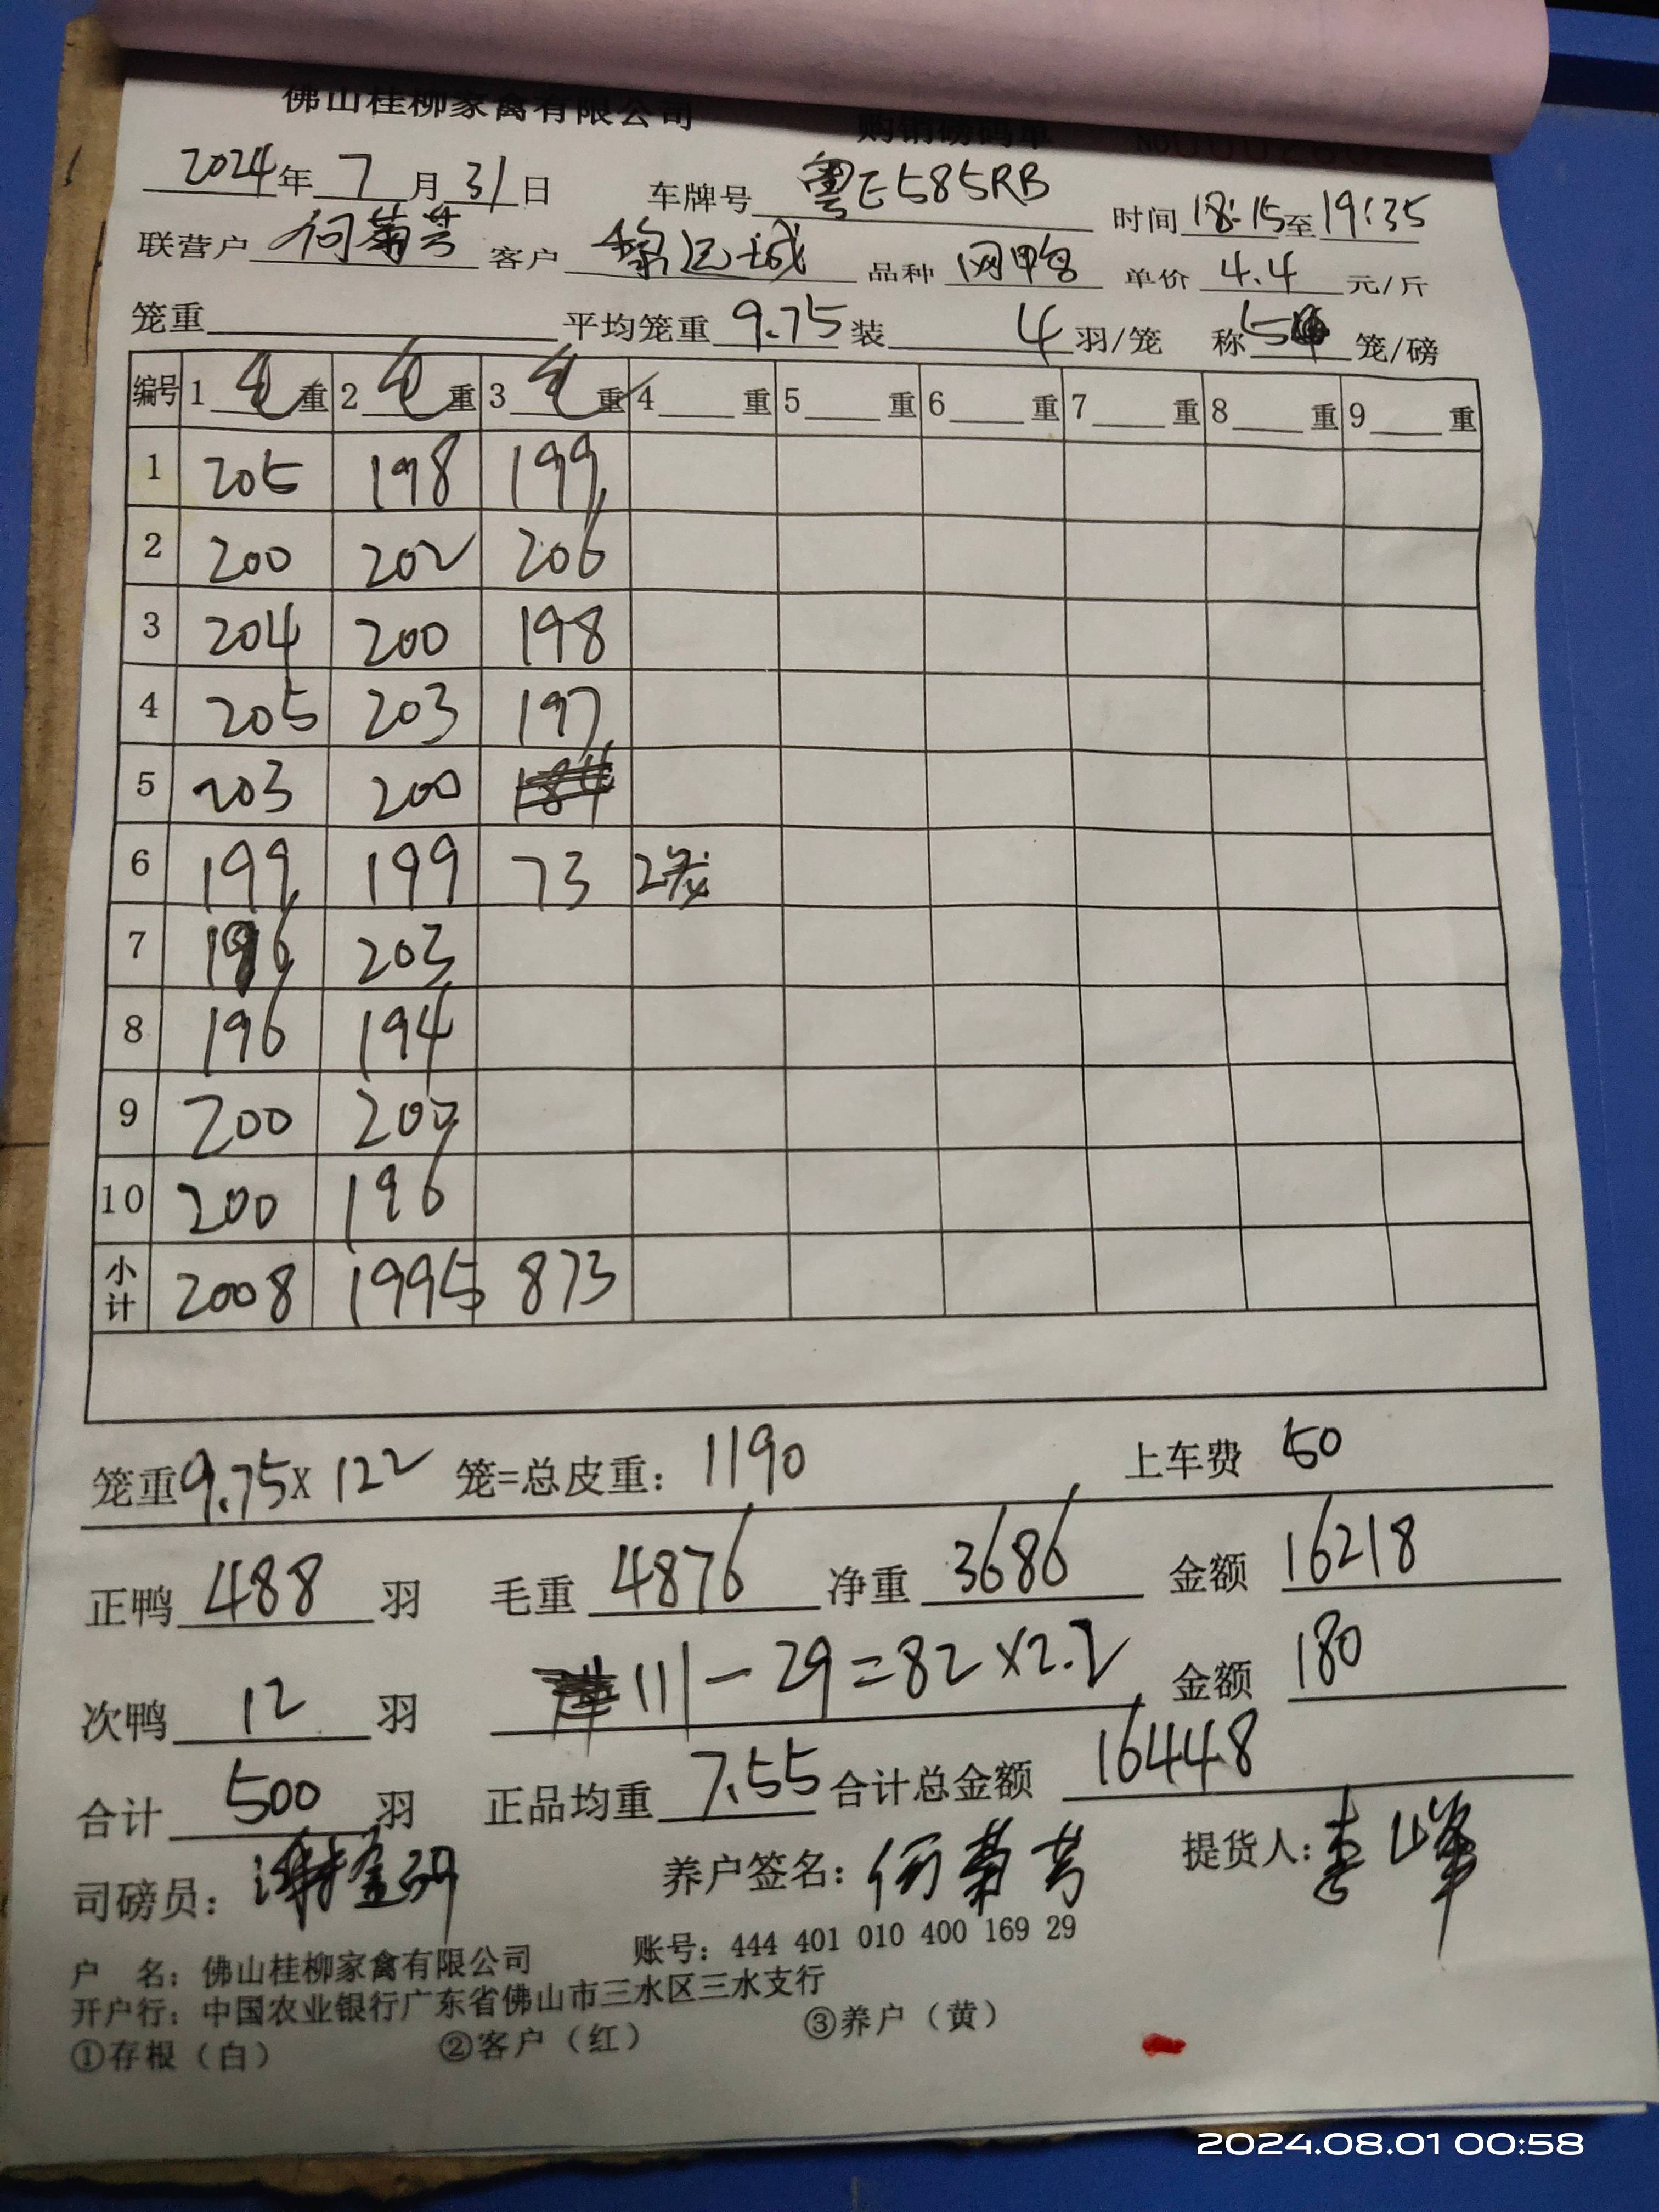 佛山桂柳家禽有限公司 购销磅码单 NO
2024年7月31日 车牌号 粤E585RB 时间 18:15至19:35
联营户 何菊芳 客户 黎运城 品种 网鸭 单价 4.4 元/斤
笼重 平均笼重 9.75 装 4 羽/笼 称 5 笼/磅
编号 1 毛 重 2 毛 重 3 毛 重 4 重 5 重 6 重 7 重 8 重 9 重
1 205 198 199
2 200 202 206
3 204 200 198
4 205 203 197
5 203 200
6 199 199 73 2笼
7 196 203
8 196 194
9 200 200
10 200 196
小计 2008 1995 873
笼重 9.75 X 122 笼=总皮重: 1190 上车费 50
正鸭 488 羽 毛重 4876 净重 3686 金额 16218
次鸭 12 羽 111-29=82×2.2 金额 180
合计 500 羽 正品均重 7.55 合计总金额 16448
司磅员: 养户签名: 何菊芳 提货人: 李山峰
户 名: 佛山桂柳家禽有限公司 账号: 444 401 010 400 169 29
开户行: 中国农业银行广东省佛山市三水区三水支行
①存根(白) ②客户(红) ③养户(黄)
2024.08.01 00:58